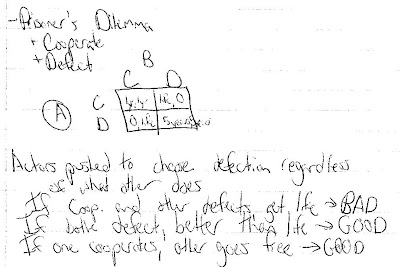 - Prisoner's Dilemma
+ Cooperate
+ Defect
B
C D
A
C 1yr, 1yr life, 0
D 0, life 5 years,
Actors pushed to choose defection regardless
of what other does
If Coop. and other defects, get life → BAD
If both defect, better than life → GOOD
If one cooperates, other goes free → GOOD